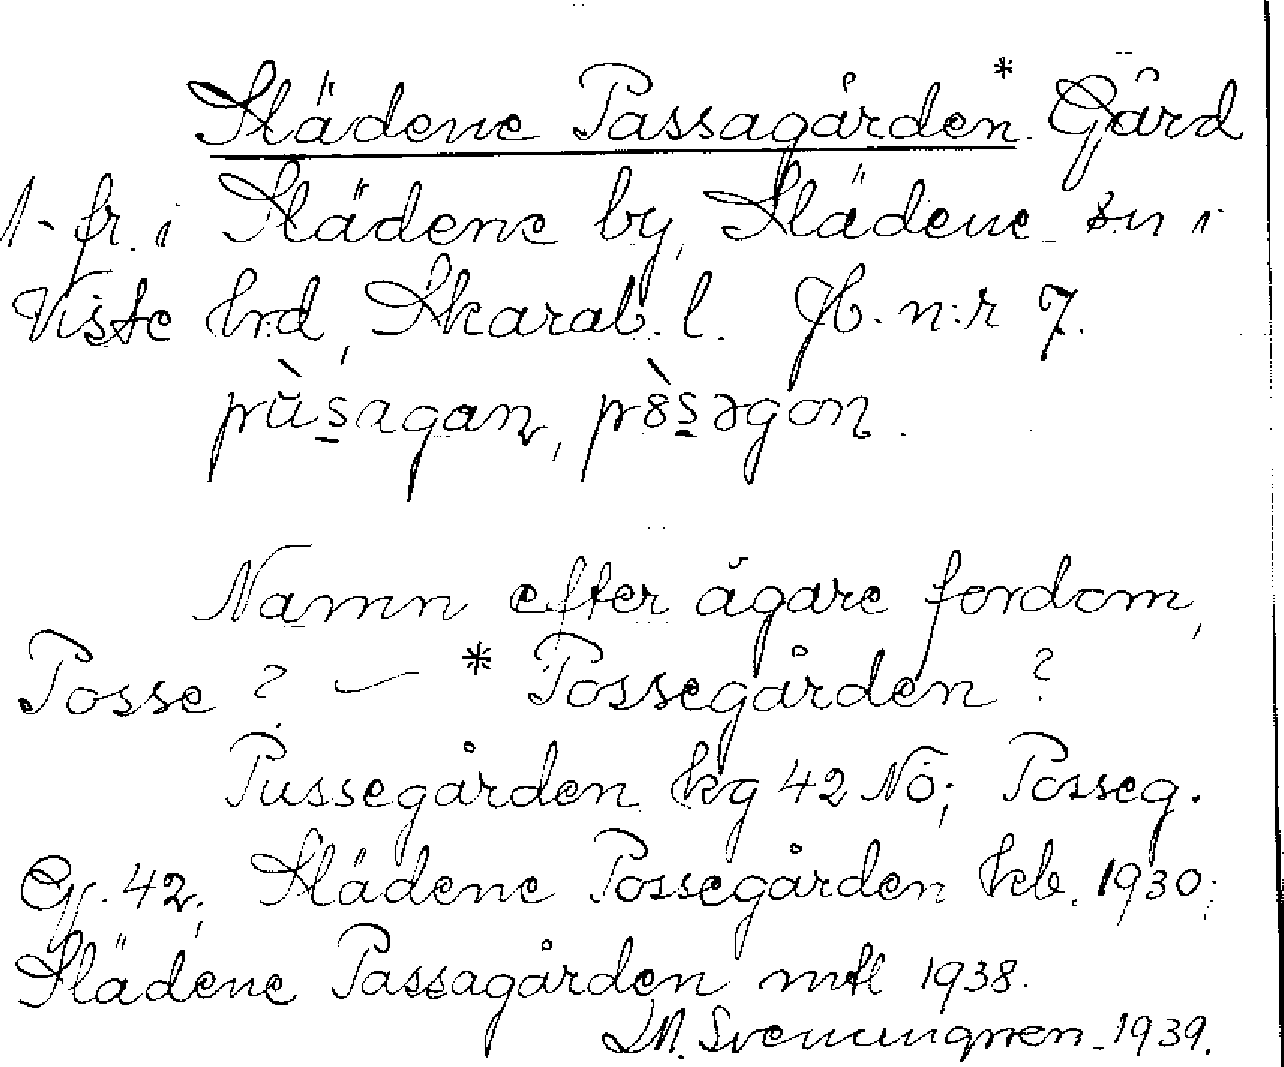 Slädene Passagården.* Gård
1 fr. i Slädene by, Slädene sn i
Viste hrd, Skarab. l. Jb. n:r 7.
pùs̱agan, pòs̱əgon.
Namn efter ägare fordom,
Posse? — *Possegården?
Pussegården kg 42 NÖ; Posseg.
Eg. 42; Slädene Possegården kb. 1930;
Slädene Passagården mtl 1938.
Svenungsson 1939.